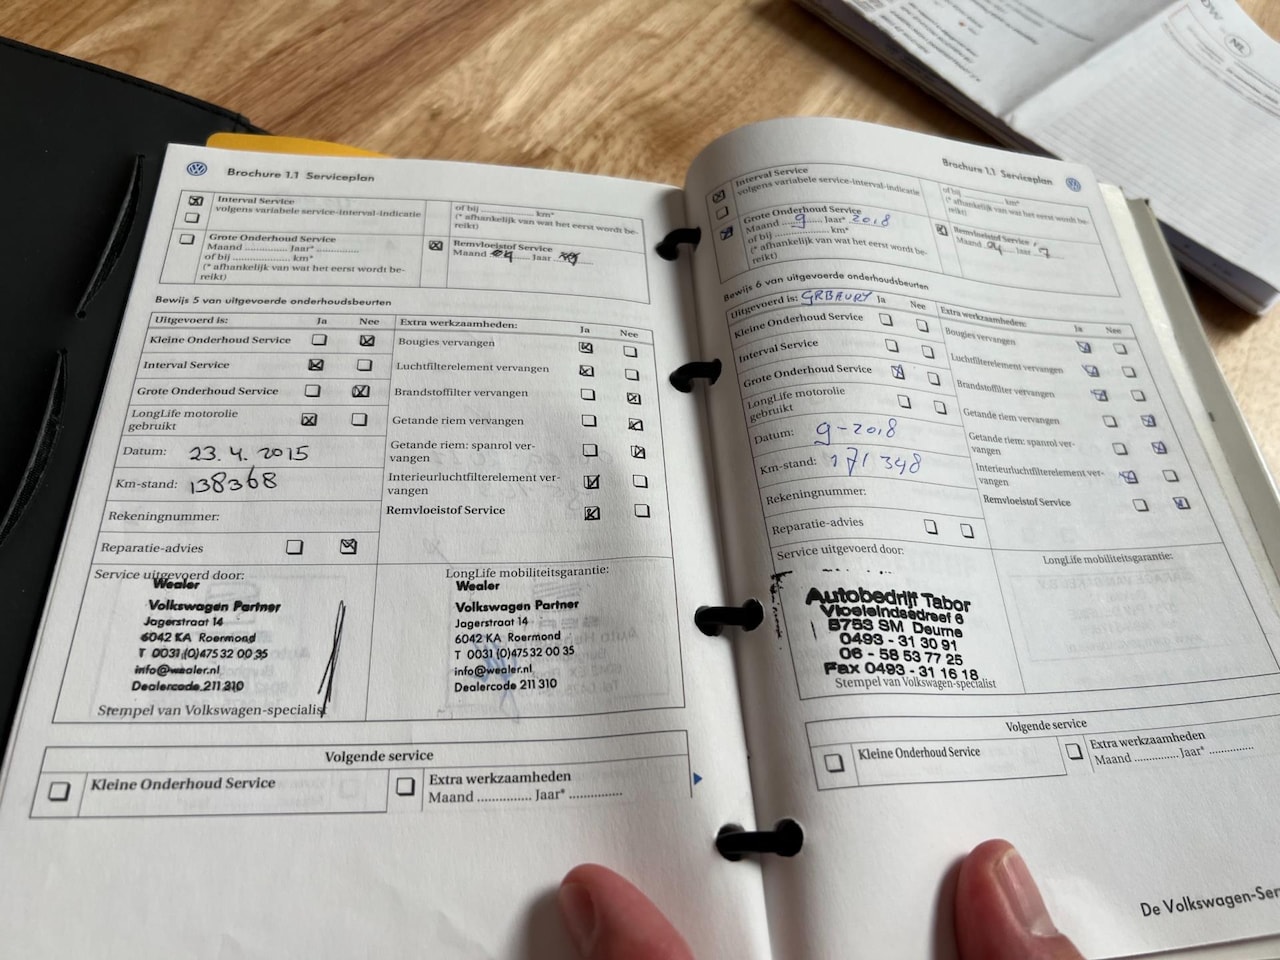 Brochure 1.1 Serviceplan
Interval Service
volgens variabele service-interval-indicatie
of bij ............ km*
(* afhankelijk van wat het eerst wordt be-
reikt)
Grote Onderhoud Service
Maand ............ Jaar* ............
of bij ............ km*
(* afhankelijk van wat het eerst wordt be-
reikt)
Remvloeistof Service
Maand 04 Jaar
Bewijs 5 van uitgevoerde onderhoudsbeurten
Uitgevoerd is: Ja Nee
Kleine Onderhoud Service
Interval Service
Grote Onderhoud Service
LongLife motorolie
gebruikt
Datum: 23.4.2015
Km-stand: 138368
Rekeningnummer:
Reparatie-advies
Extra werkzaamheden: Ja Nee
Bougies vervangen
Luchtfilterelement vervangen
Brandstoffilter vervangen
Getande riem vervangen
Getande riem: spanrol ver-
vangen
Interieurluchtfilterelement ver-
vangen
Remvloeistof Service
Service uitgevoerd door:
Wealer
Volkswagen Partner
Jagerstraat 14
6042 KA Roermond
T 0031 (0)475 32 00 35
info@wealer.nl
Dealercode 211 310
Stempel van Volkswagen-specialist
LongLife mobiliteitsgarantie:
Wealer
Volkswagen Partner
Jagerstraat 14
6042 KA Roermond
T 0031 (0)475 32 00 35
info@wealer.nl
Dealercode 211 310
Volgende service
Kleine Onderhoud Service
Extra werkzaamheden
Maand ............ Jaar* ............
Brochure 1.1 Serviceplan
Interval Service
volgens variabele service-interval-indicatie
of bij ............ km*
(* afhankelijk van wat het eerst wordt be-
reikt)
Grote Onderhoud Service
Maand 9 Jaar* 2018
of bij ............ km*
(* afhankelijk van wat het eerst wordt be-
reikt)
Remvloeistof Service
Maand 04 Jaar
Bewijs 6 van uitgevoerde onderhoudsbeurten
Uitgevoerd is: Ja Nee
Kleine Onderhoud Service
Interval Service
Grote Onderhoud Service
LongLife motorolie
gebruikt
Datum: 9-2018
Km-stand: 171348
Rekeningnummer:
Reparatie-advies
Extra werkzaamheden: Ja Nee
Bougies vervangen
Luchtfilterelement vervangen
Brandstoffilter vervangen
Getande riem vervangen
Getande riem: spanrol ver-
vangen
Interieurluchtfilterelement ver-
vangen
Remvloeistof Service
Service uitgevoerd door:
Autobedrijf Tabor
Vloeieindsedreef 6
5753 SM Deurne
0493 - 31 30 91
06 - 58 53 77 25
Fax 0493 - 31 16 18
Stempel van Volkswagen-specialist
LongLife mobiliteitsgarantie:
Volgende service
Kleine Onderhoud Service
Extra werkzaamheden
Maand ............ Jaar* ............
De Volkswagen-Ser
NL